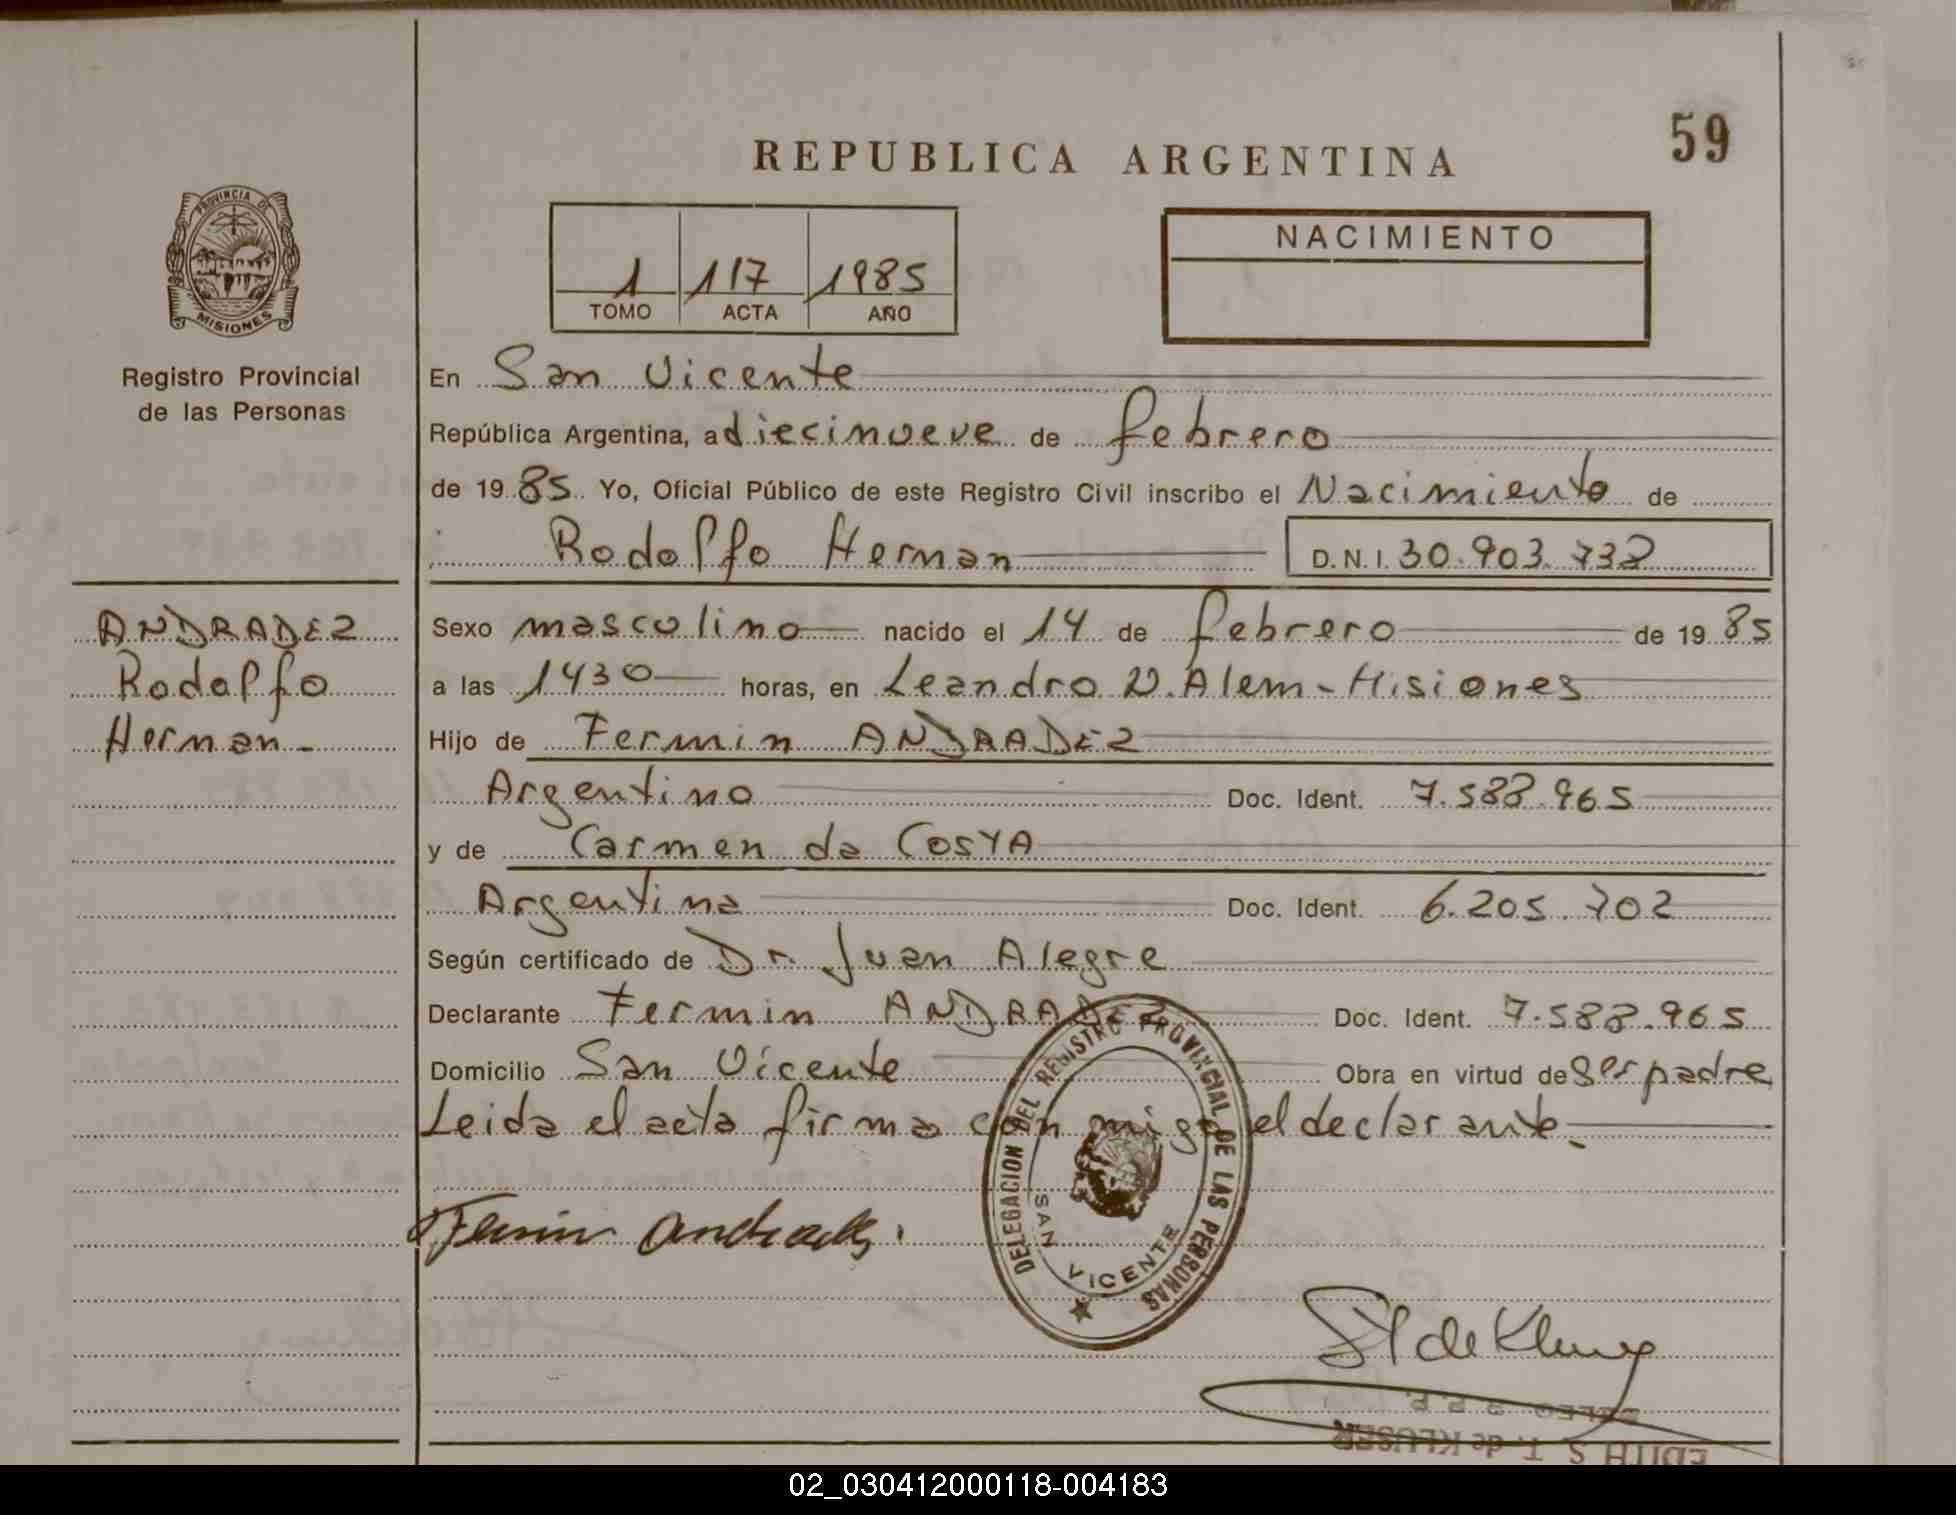 59
REPUBLICA ARGENTINA
PROVINCIA DE
MISIONES
Registro Provincial
de las Personas
1 117 1985
TOMO ACTA AÑO
NACIMIENTO
En San Vicente
República Argentina, a diecinueve de febrero
de 1985 Yo, Oficial Público de este Registro Civil inscribo el Nacimiento de
Rodolfo Hernan D.N.I. 30.903.732
ANDRADEZ
Rodolfo
Hernan-
Sexo masculino nacido el 14 de febrero de 1985
a las 1430 horas, en Leandro N. Alem - Misiones
Hijo de Fermin ANDRADEZ
Argentino Doc. Ident. 7.588.965
y de Carmen da COSTA
Argentina Doc. Ident. 6.205.702
Según certificado de Dr. Juan Alegre
Declarante Fermin ANDRADEZ Doc. Ident. 7.588.965
Domicilio San Vicente Obra en virtud de ser padre
Leida el acta firma con migo el declarante.
Fermin Andradez.
DELEGACION DEL REGISTRO PROVINCIAL DE LAS PERSONAS
SAN VICENTE
EDITH S. T. de KLUSER
02_030412000118-004183